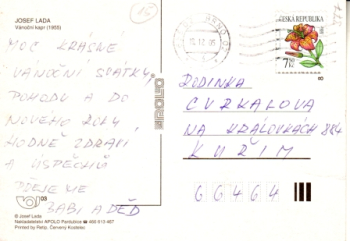 JOSEF LADA
Vánoční kapr (1955)
MOC KRÁSNÉ
VÁNOČNÍ SVÁTKY,
POHODU A DO
NOVÉHO ROKU
HODNĚ ZDRAVÍ
A ÚSPĚCHŮ
PŘEJEME
BABI A DĚD
03
© Josef Lada
Nakladatelství APOLO Pardubice
Printed by Retip, Červený Kostelec
APOLO
ČESKÁ REPUBLIKA
7,50
RODINKA
CVRKALOVA
NA KRÁLOVKÁCH 884
KUŘIM
66464